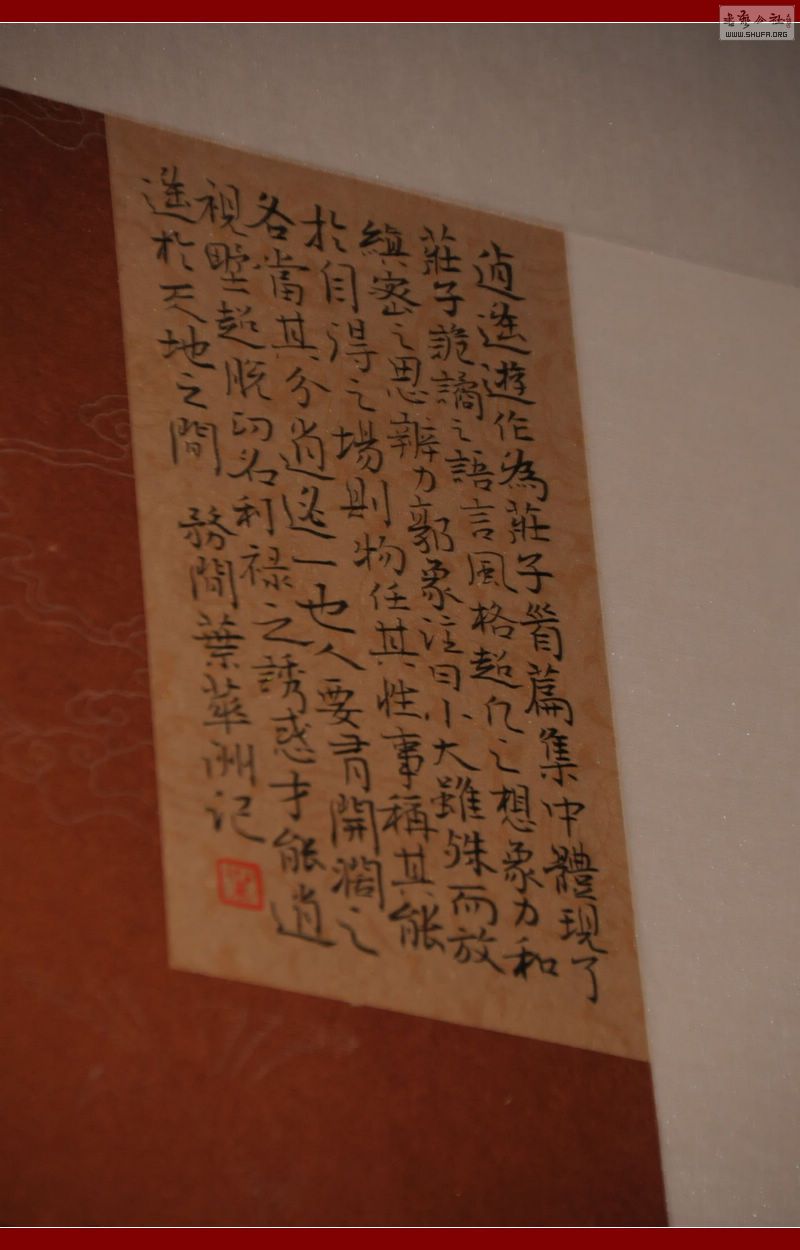 逍遥遊作為莊子首篇集中體現了
莊子詭譎之語言風格超凡之想象力和
縝密之思辨力郭象注曰小大雖殊而放
於自得之場則物任其性事稱其能
各當其分逍遥一也人要有開濶之
視野超脱功名利禄之誘惑才能逍
遥於天地之間 務閒葉華洲記
WWW.SHUFA.ORG